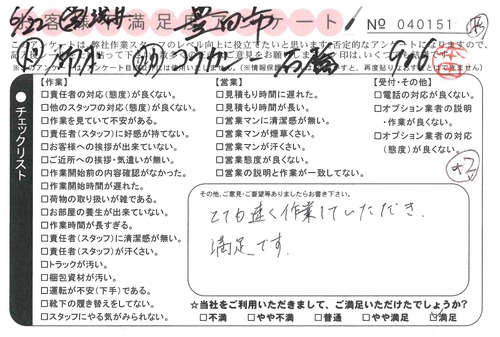 お客様満足度アンケート!
No 040151
6/22
豊田市
このアンケートは、弊社作業スタッフのレベル向上に役立てたいと思います。否定的なアンケートになりますので、
【作業】
□責任者の対応(態度)が良くない。
□他のスタッフの対応(態度)が良くない。
□作業を見ていて不安がある。
□責任者(スタッフ)に好感が持てない。
□お客様への挨拶が出来ていない。
□ご近所への挨拶・気遣いが無い。
□作業開始前の内容確認がなかった。
□作業開始時間が遅れた。
□荷物の取り扱いが雑である。
□お部屋の養生が出来ていない。
□作業時間が長すぎる。
□責任者(スタッフ)に清潔感が無い。
□責任者(スタッフ)が汗くさい。
□トラックが汚い。
□梱包資材が汚い。
□運転が不安(下手)である。
□靴下の履き替えをしてない。
□スタッフにやる気がみられない。
【営業】
□見積もり時間に遅れた。
□見積もり時間が長い。
□営業マンに清潔感が無い。
□営業マンが煙草くさい。
□営業マンが汗くさい。
□営業態度が良くない。
□営業の説明と作業が一致してない。
【受付・その他】
□電話の対応が良くない。
□オプション業者の説明
・作業が良くない。
□オプション業者の対応
(態度)が良くない。
チェックリスト
その他、ご意見・ご要望等ありましたらお書き下さい。
とても速く作業していただき、
満足です。
☆当社をご利用いただきまして、ご満足いただけてしょうか?
□不満 □やや不満 □普通 □やや満足 ☑満足